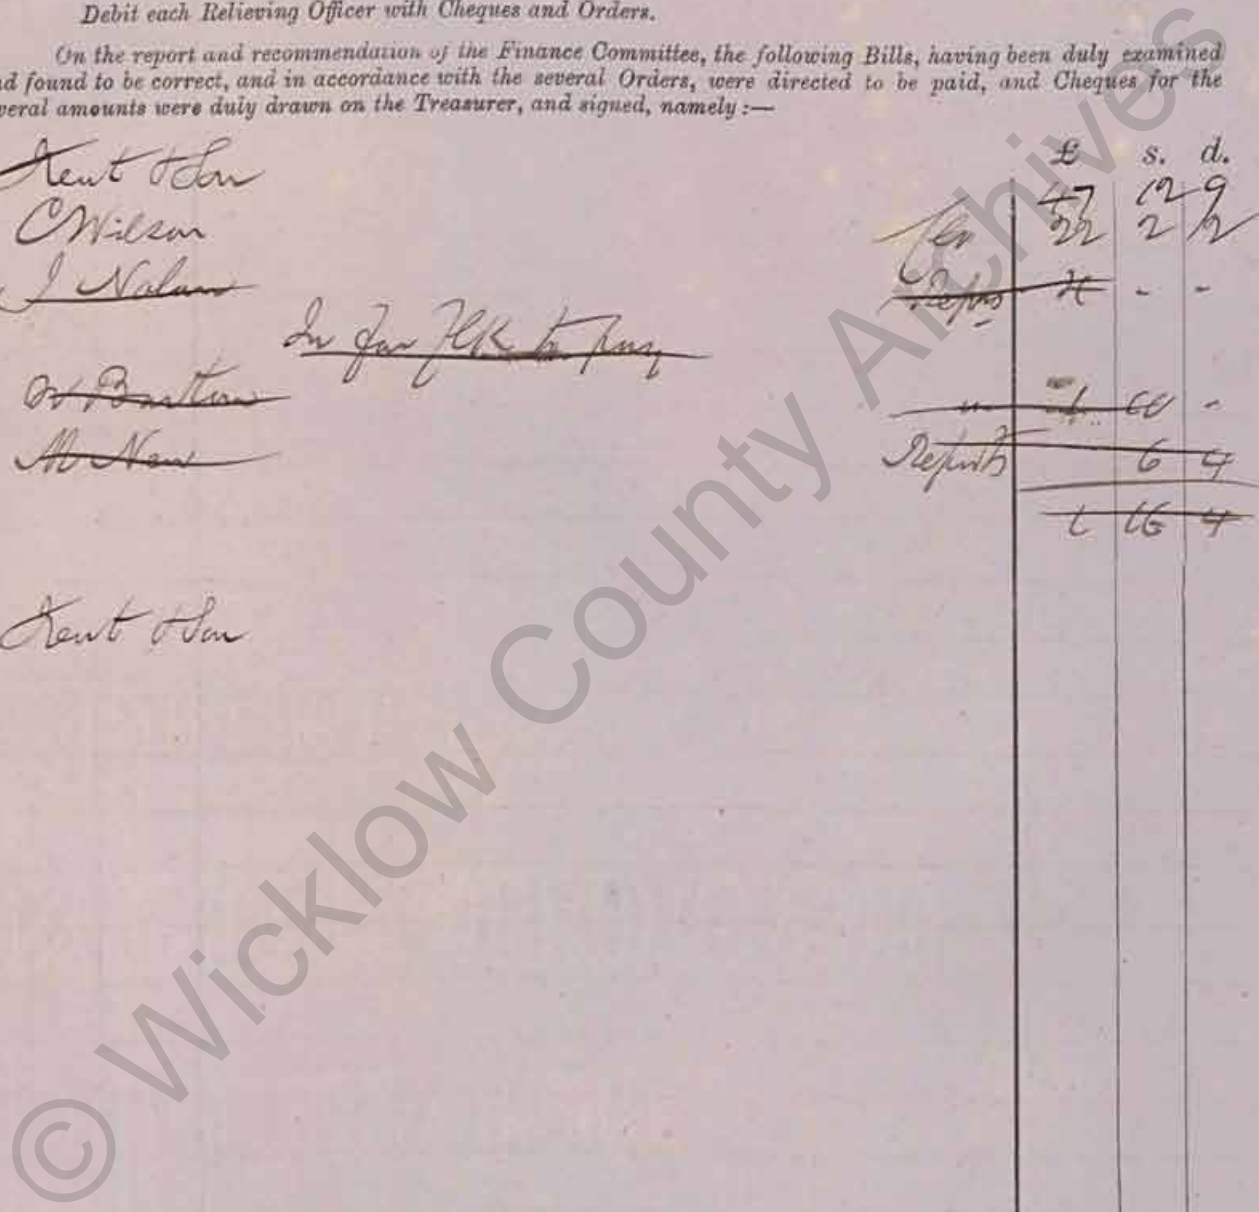 Debit each Relieving Officer with Cheques and Orders.
On the report and recommendation of the Finance Committee, the following Bills, having been duly examined
nd found to be correct, and in accordance with the several Orders, were directed to be paid, and Cheques for the
veral amounts were duly drawn on the Treasurer, and signed, namely :—
£ s. d.
Kent & Son 47 12 9
C Wilson 22 2
J Nolan - -
In for to pay
Barton -
M 6 4
1 16 4
Kent & Son
© Wicklow County Archives